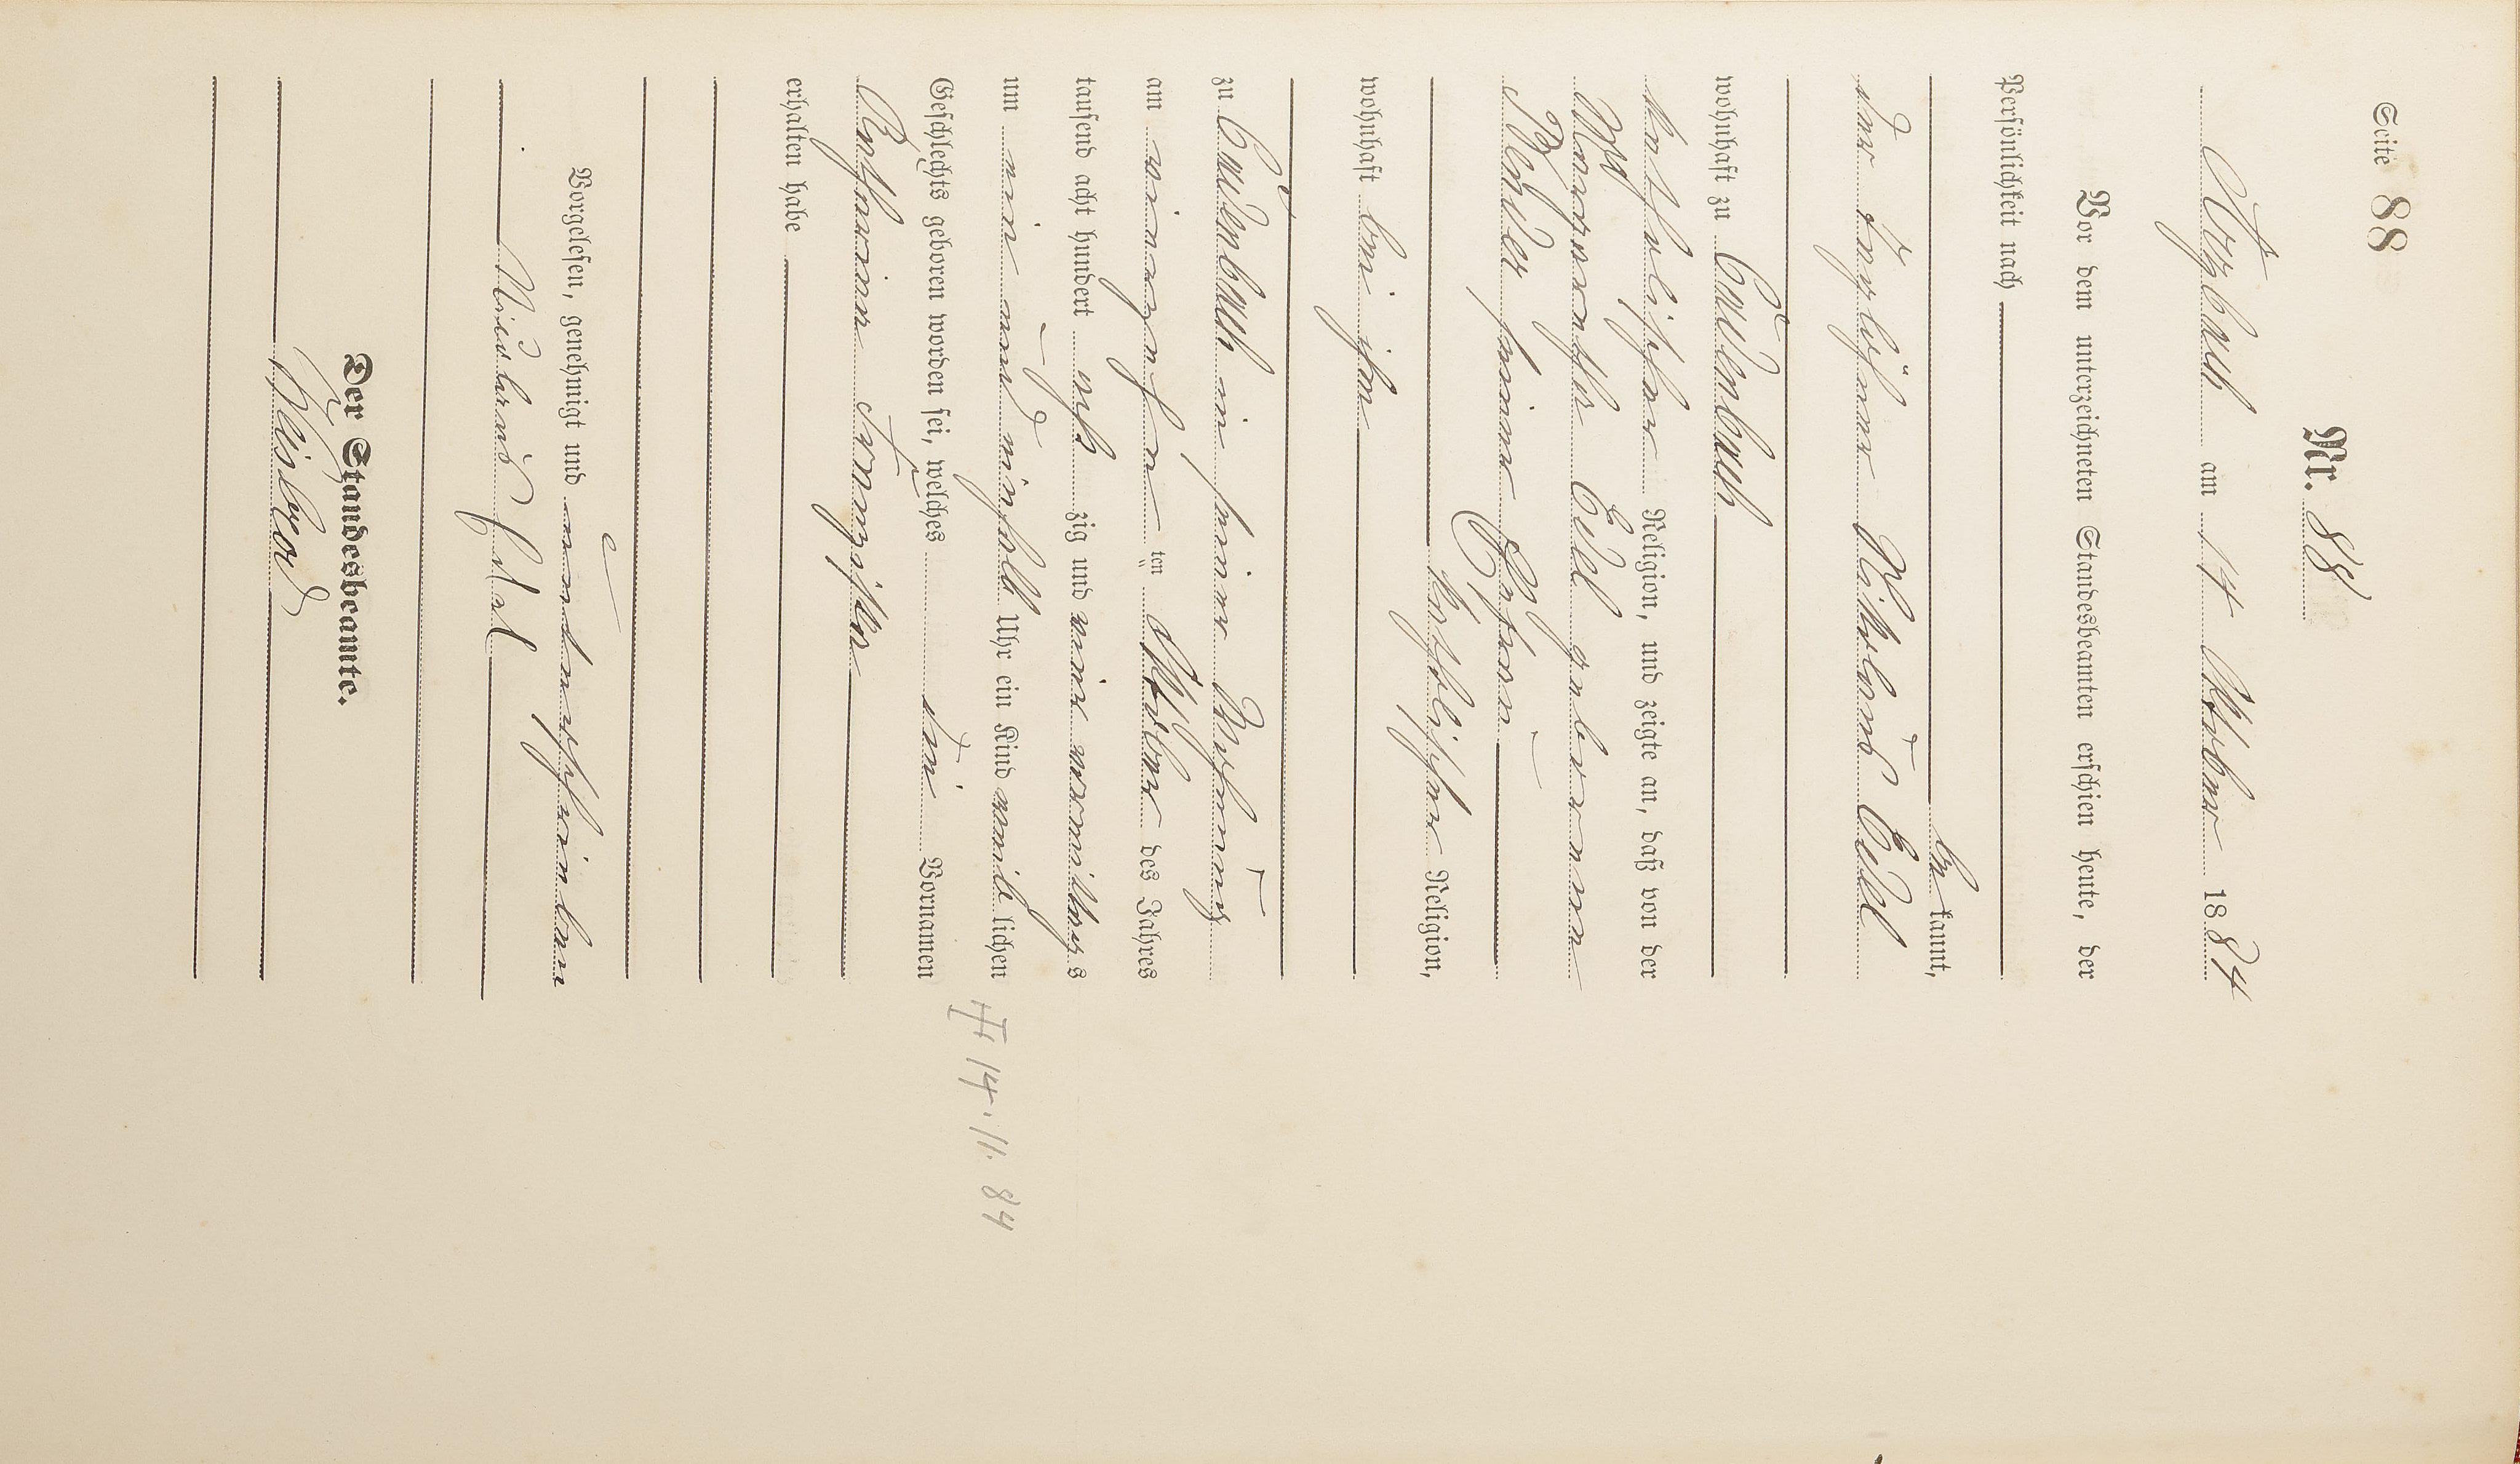 Seite 88
Nr. 88
Atzbach am 14 Oktober 1884
Vor dem unterzeichneten Standesbeamten erschien heute, der
Persönlichkeit nach
be kannt,
der Taglöhner Nikolaus
wohnhaft zu
katholischer Religion, und zeigte an, daß von der
Margaretha geborenen
seiner Ehefrau
katholischer Religion,
wohnhaft bei ihm
zu in seiner Wohnung
am vierzehn ten Oktober des Jahres
tausend acht hundert acht zig und vier vormittags
um ein und einhalb Uhr ein Kind weib lichen
Geschlechts geboren worden sei, welches die Vornamen
Katharina Franziska
erhalten habe
Vorgelesen, genehmigt und unterschrieben
Der Standesbeamte.
14. 11. 84